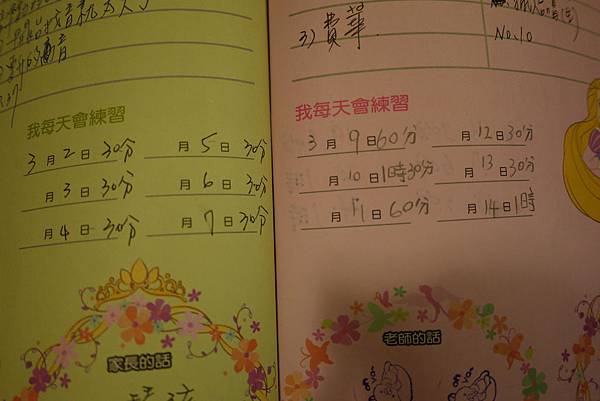 3) 費華
No.10
我每天會練習
3月2日30分 月5日30分
月3日30分 月6日30分
月4日30分 月7日30分
家長的話
我每天會練習
3月9日60分 月12日30分
月10日1時30分 月13日30分
月11日60分 月14日1時
老師的話